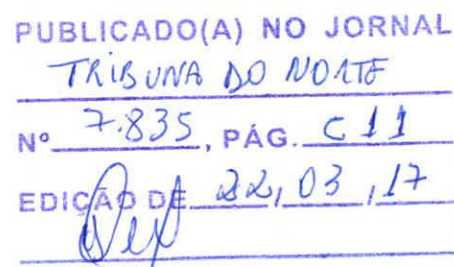 PUBLICADO(A) NO JORNAL
TRIBUNA DO NORTE
Nº 7.835, PÁG. C 11
EDIÇÃO DE 22, 03, 17